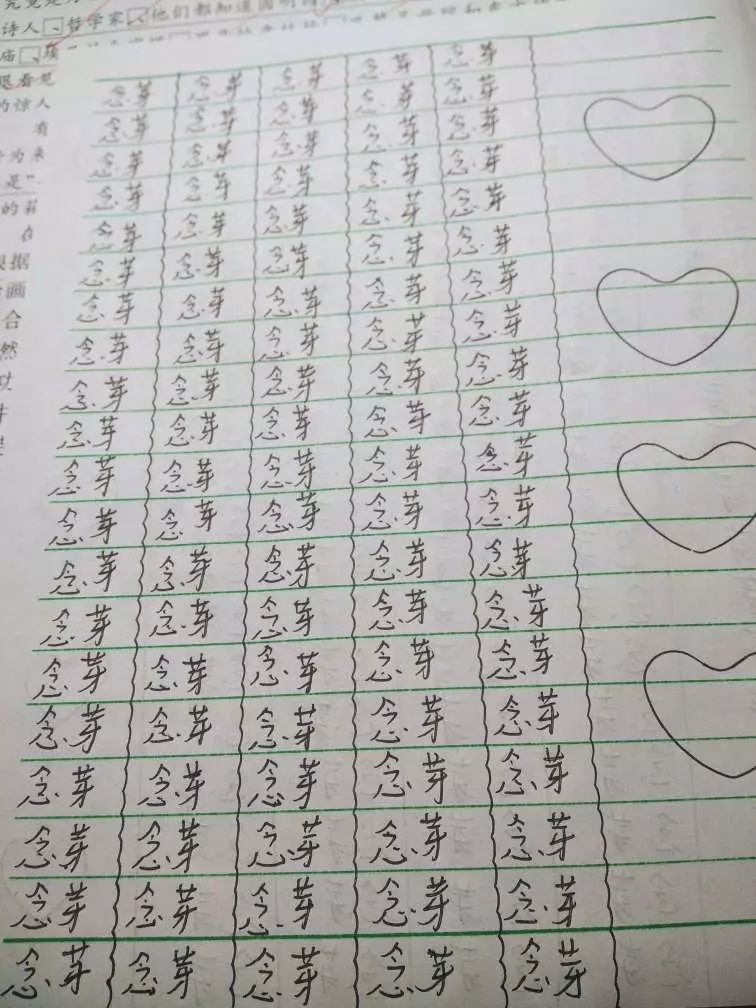 究竟是
诗人、哲学家、他们都知道圆明园
庙、埃
眼看见
的惊人
有
为来
是”
的若
在
根据
画
合
然
念芽 念芽 念芽 念芽 念芽
念芽 念芽 念芽 念芽 念芽
念芽 念芽 念芽 念芽 念芽
念芽 念芽 念芽 念芽 念芽
念芽 念芽 念芽 念芽 念芽
念芽 念芽 念芽 念芽 念芽
念芽 念芽 念芽 念芽 念芽
念芽 念芽 念芽 念芽 念芽
念芽 念芽 念芽 念芽 念芽
念芽 念芽 念芽 念芽 念芽
念芽 念芽 念芽 念芽 念芽
念芽 念芽 念芽 念芽 念芽
念芽 念芽 念芽 念芽 念芽
念芽 念芽 念芽 念芽 念芽
念芽 念芽 念芽 念芽 念芽
念芽 念芽 念芽 念芽 念芽
念芽 念芽 念芽 念芽 念芽
念芽 念芽 念芽 念芽 念芽
念芽 念芽 念芽 念芽 念芽
念芽 念芽 念芽 念芽 念芽